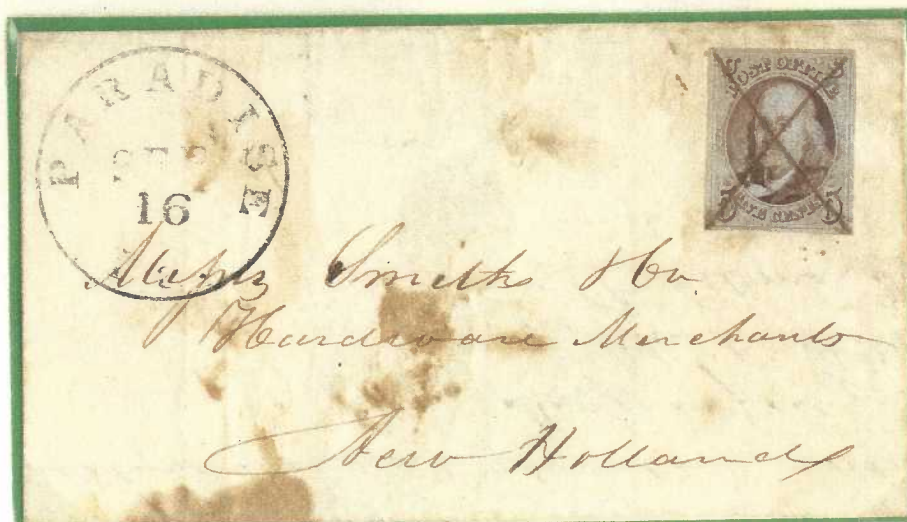 PARADISE
SEP
16
POST OFFICE
FIVE CENTS
5 5
Messrs Smith & Co
Hardware Merchants
New Holland